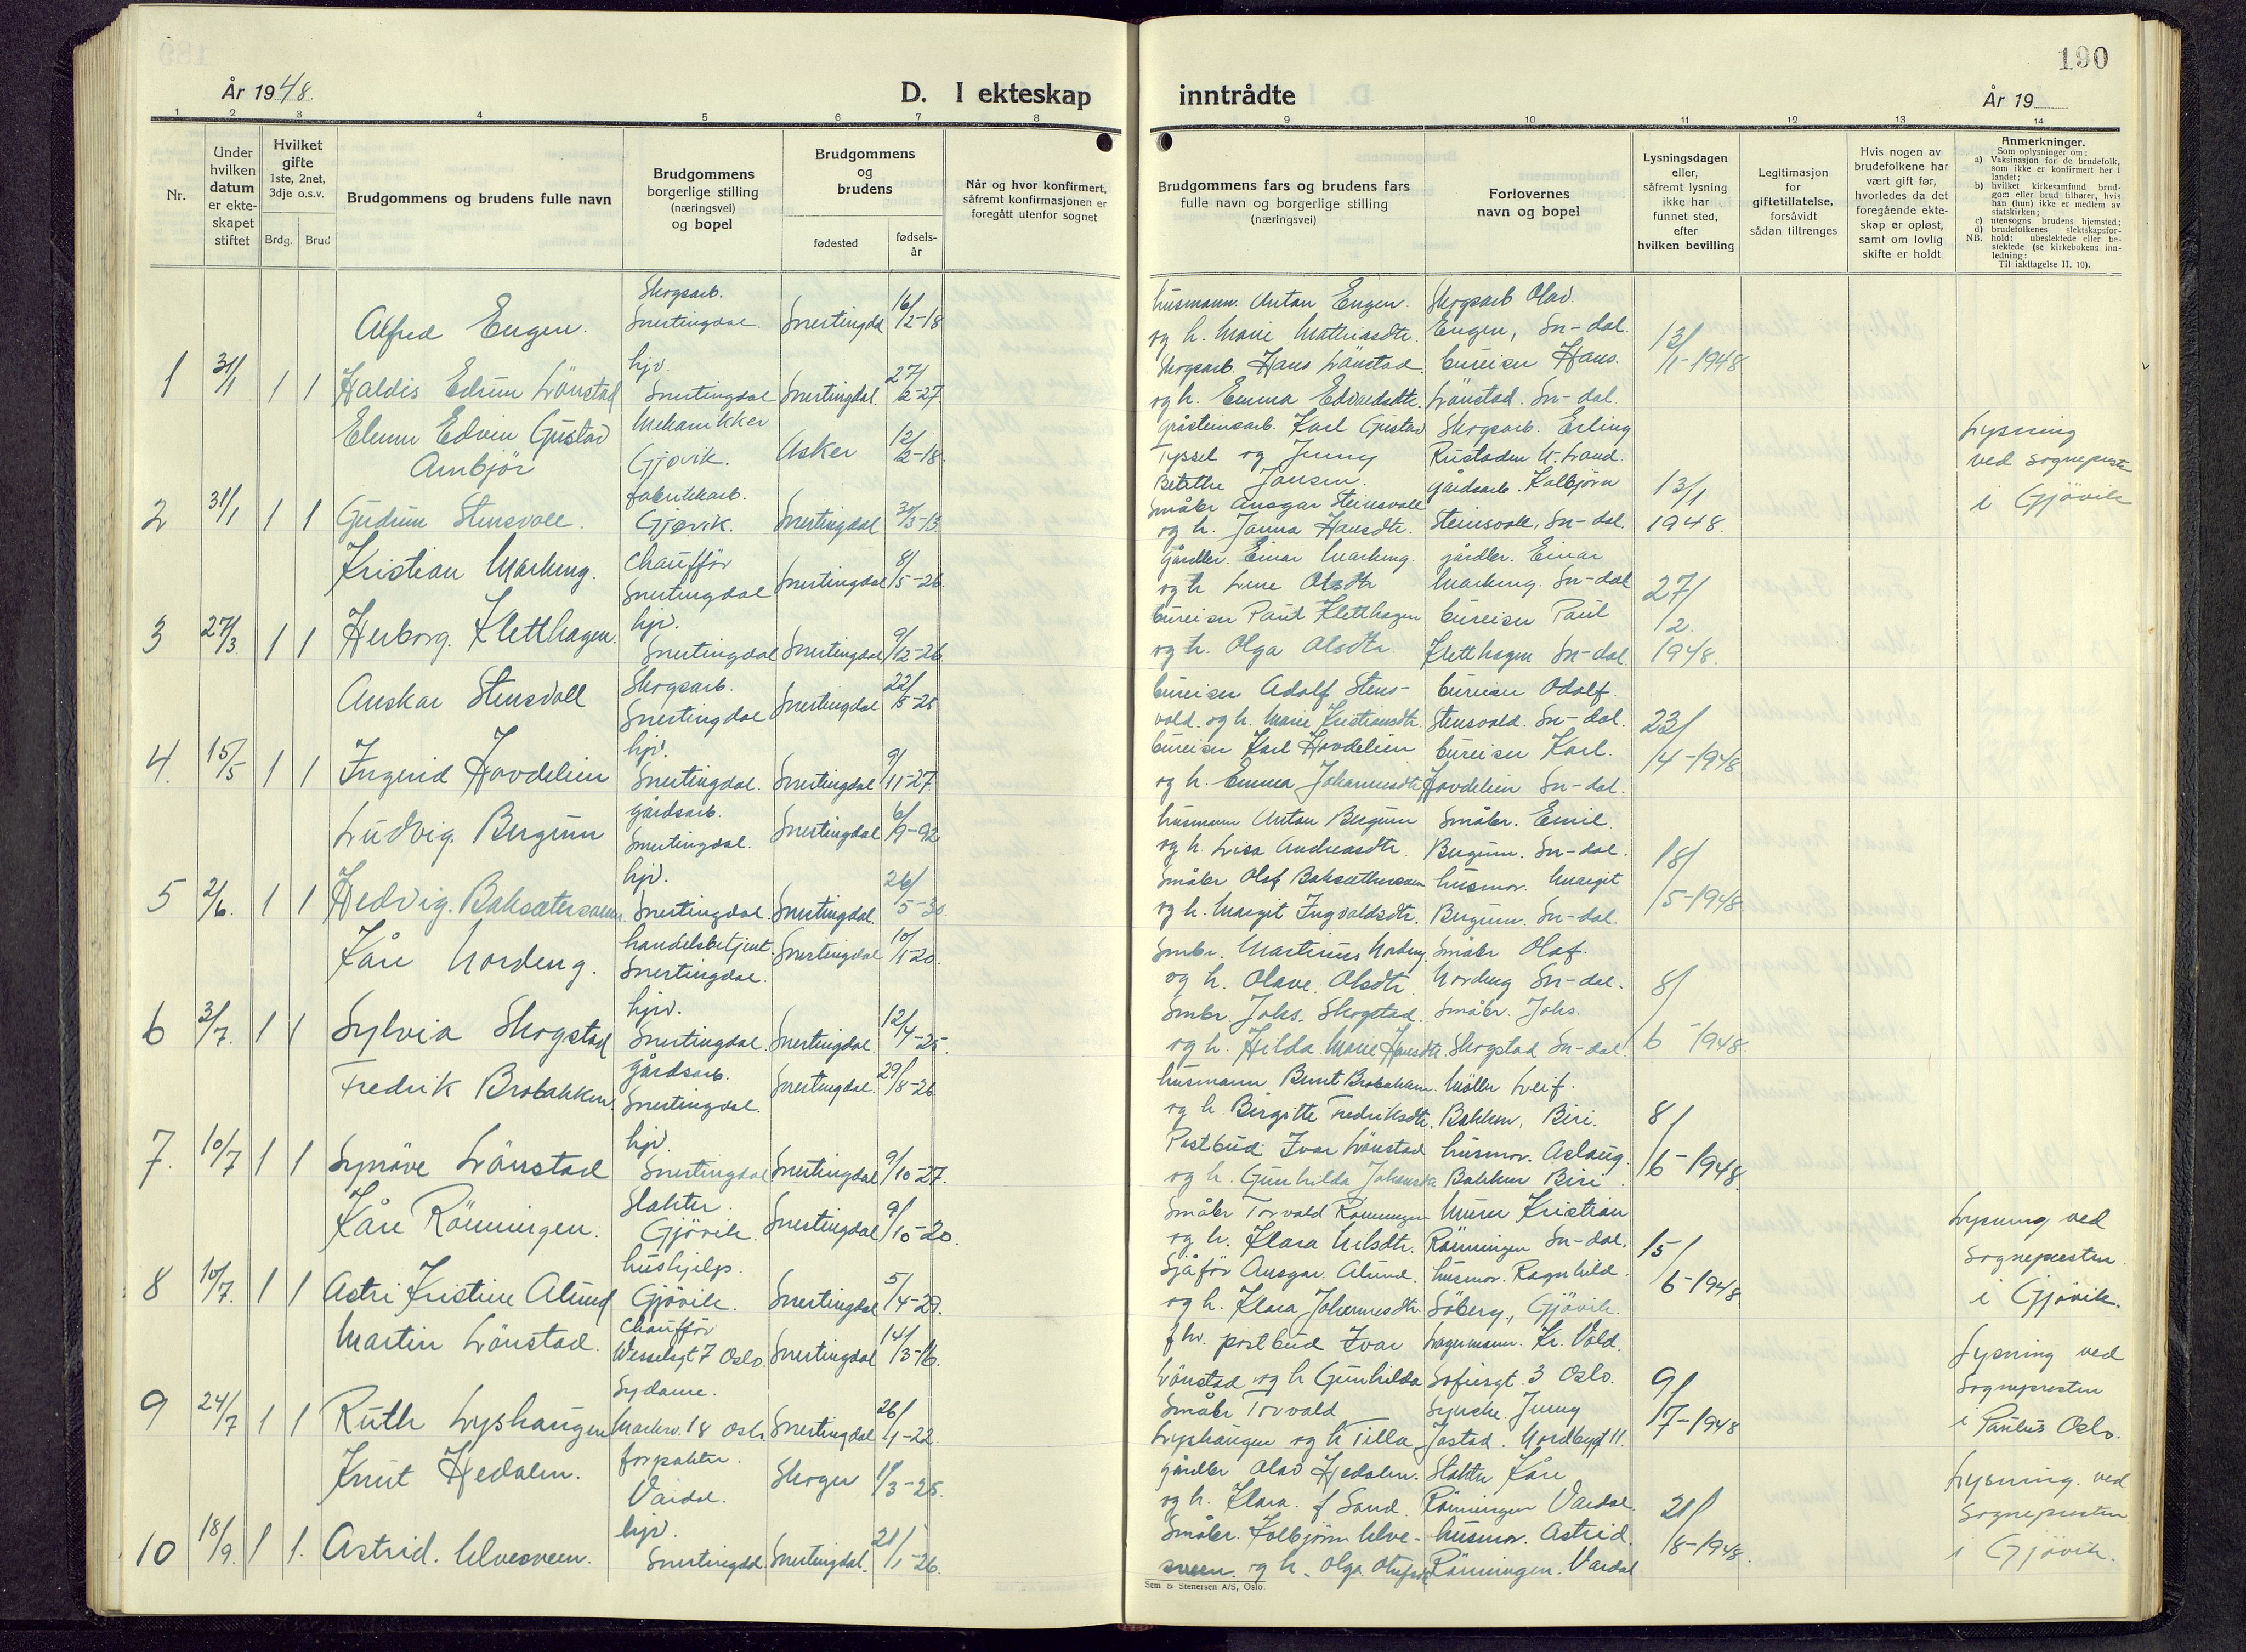 190
År 1948.
D. I ekteskap
inntrådte
År 19
1 2 3 4 5 6 7 8
9 10 11 12 13 14
Nr.
Under hvilken datum er ekteskapet stiftet
Hvilket gifte 1ste, 2net, 3dje o.s.v.
Brdg.
Brud
Brudgommens og brudens fulle navn
Brudgommens borgerlige stilling (næringsvei) og bopel
Brudgommens og brudens
fødested
fødsels-år
Når og hvor konfirmert, såfremt konfirmasjonen er foregått utenfor sognet
Brudgommens fars og brudens fars fulle navn og borgerlige stilling (næringsvei)
Forlovernes navn og bopel
Lysningsdagen eller, såfremt lysning ikke har funnet sted, efter hvilken bevilling
Legitimasjon for giftetillatelse, forsåvidt sådan tiltrenges
Hvis nogen av brudefolkene har vært gift før, hvorledes da det foregående ekteskap er opløst, samt om lovlig skifte er holdt
Anmerkninger.
Som oplysninger om:
a) Vaksinasjon for de brudefolk, som ikke er konfirmert her i landet;
b) hvilket kirkesamfund brudgom eller brud tilhører, hvis han (hun) ikke er medlem av statskirken;
c) utensogns brudens hjemsted;
d) brudefolkenes slektskapsforhold: ubeslektede eller beslektede (se kirkebokens innledning;
NB.
Til iakttagelse II, 10).
1 31/1 1 1
Alfred Engen. Skogsarb. Snertingdal. Snertingdal 16/2-18
husmann Anton Engen. og h. Marie Mathiasdtr. Skogsarb Olav. Engen, Sn-dal. 13/1-1948
Haldis Edrun Lönstad hjv. Snertingdal Snertingdal. 27/2-27
Skogsarb. Hans Lönstad og h. Emma Edvardsdtr. bureiser Hans. Lönstad. Sn-dal.
2 31/1 1 1
Edvin Gustav Arnbjör Mekanikker Gjøvik. Asker 12/2-18
gråsteinsarb. Karl Gustav Tyssel og Jenny Jansen. Skogsarb. Erling Rustaden V. Land. 13/1 1948.
Lysning ved sogneprest i Gjövik
Gudrun Stensvoll. fabrikkarb. Gjøvik. Snertingdal
Småbr Ansgar Steinsvoll og h. Janna Hansdtr. gårdsarb. Kolbjörn Steinsvoll, Sn-dal
3 27/3. 1 1
Kristian Markeng. Chauffør Snertingdal Snertingdal 8/5-26
Gårdbr. Einar Markeng. og h Lene Olsdtr gårdbr. Einar Markeng. Sn-dal 27/2. 1948.
Herborg. Kletthagen. hjv. Snertingdal Snertingdal 9/12-26
bureiser Paul Kletthagen og h. Olga Olsdtr. bureiser Paul Kletthagen Sn-dal.
4. 15/5 1 1
Anskar Stensvoll Skogsarb. Snertingdal Snertingdal 22/5-25
bureiser Adolf Stensvold. og h. Marie Kristiansdtr. bureiser Adolf. Stensvold. Sn-dal. 23/4-1948
Ingerid Hovdelien hjv. Snertingdal. Snertingdal 9/11-27.
bureiser Karl Hovdelien og h. Emma Johannesdtr bureiser Karl. Hovdelien Sn-dal.
5 2/6. 1 1
Ludvig. Bergum gårdsarb. Snertingdal. Snertingdal 6/9-92
husmann Anton Bergum og h. Lisa Andreasdtr. Småbr. Emil. Bergum. Sn-dal. 18/5-1948
Hedvig. Baksetersveen hjv. Snertingdal. Snertingdal. 26/5-30
Småbr Olaf og h. Margit Ingvaldsdtr. husmor. Margit Bergum. Sn-dal.
6 3/7. 1 1
Kåre Nordeng. handelsbetjent. Snertingdal. Snertingdal 10/1-20.
Smbr. Martinius Nordeng. og h. Olave. Olsdtr. Småbr Olaf. Nordeng Sn-dal. 8/6-1948
Sylvia Skogstad hjv. Snertingdal. Snertingdal. 12/4-25.
Smbr. Johs. Skogstad. og h. Hilda Marie Hansdtr. Småbr. Johs. Skogstad Sn-dal.
7. 10/7 1 1
Fredrik Brobakken. gårdsarb. Snertingdal. Snertingdal. 29/8-26
husmann Bernt Brobakken. og h. Birgitte Fredriksdtr. Möller Leif. Bakken, Biri. 8/6-1948
Synöve Lönstad hjv. Snertingdal Snertingdal 9/10-27.
Postbud Ivar Lönstad og h. Gunhilda husmor. Aslaug. Bakken Biri.
8 10/7. 1 1
Kåre Rönningen. Slakter. Gjövik. Snertingdal 9/10-20.
Småbr Torvald Rönningen og h. Klara Nilsdtr. Murer Kristian Rönningen Sn-dal. 15/6-1948
Lysning ved Sognepresten i Gjövik.
Astri Kristine Alund hushjelp. Gjövik. Snertingdal 5/4-29.
Sjåför Ansgar. Alund. og h. Klara Johannesdtr. husmor. Ragnhild. Söberg, Gjövik.
9 24/7 1 1
Martin Lönstad. Chauffør Wesselsgt 7 Oslo. Snertingdal 14/3-16.
fhv. postbud Ivar Lönstad og h Gunhilda Lagermann. Kr. Vold. Sofiesgt. 3 Oslo. 9/7-1948
Lysning ved Sognepresten i Paulus Oslo.
Ruth Lyshaugen Sydame. Markv. 18 Oslo. Snertingdal 26/1-22
Småbr Torvald Lyshaugen og h Tilla Syerske. Jenny Jostad. Nordbygt 11.
10 18/9. 1 1.
Knut Hedalen. forpakter. Vardal. Skoger 1/3-25.
gårdbr Olav Hedalen. og h. Klara. f Sand. Slakter Kåre Rönningen Vardal. 21/8-1948.
Lysning. ved Sognepresten i Gjövik.
Astrid. Ulvesveen. hjv. Snertingdal Snertingdal. 21/1-26.
Småbr. Kolbjörn Ulvesveen. og h. Olga husmor. Astrid. Rönningen. Vardal
Sem & Stenersen A/S, Oslo.